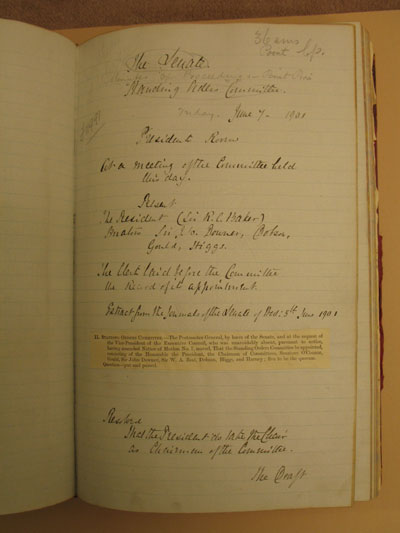 36 ems
The Senate.
Standing Orders Committee.
Friday. June 7th 1901
Presidents Rooms
At a meeting of the Committee held
this day.
Present
The President (Sir R. C. Baker)
Senators Sir J. W. Downer, Dobson,
Gould, Higgs.
The Clerk laid before the Committee
the Record of its appointment.
Extract from the Journals of the Senate of Wed: 5th June 1901
11. STANDING ORDERS COMMITTEE.—The Postmaster-General, by leave of the Senate, and at the request of
the Vice-President of the Executive Council, who was unavoidably absent, pursuant to notice,
having amended Notice of Motion No. 7, moved, That the Standing Orders Committee be appointed,
consisting of the Honorable the President, the Chairman of Committees, Senators O'Connor,
Gould, Sir John Downer, Sir W. A. Zeal, Dobson, Higgs, and Harney; five to be the quorum.
Question—put and passed.
Resolved
That the President do take the Chair
as Chairman of the Committee.
The Draft